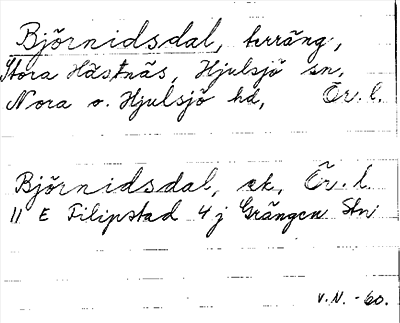 Björnidsdal, terräng.,
Stora Hästnäs, Hjulsjö sn,
Nora o. Hjulsjö hd, Ör. l.
Björnidsdal, ek, Ör. l.
11 E Filipstad 4 j Grängen Stn
V. N. - 60.